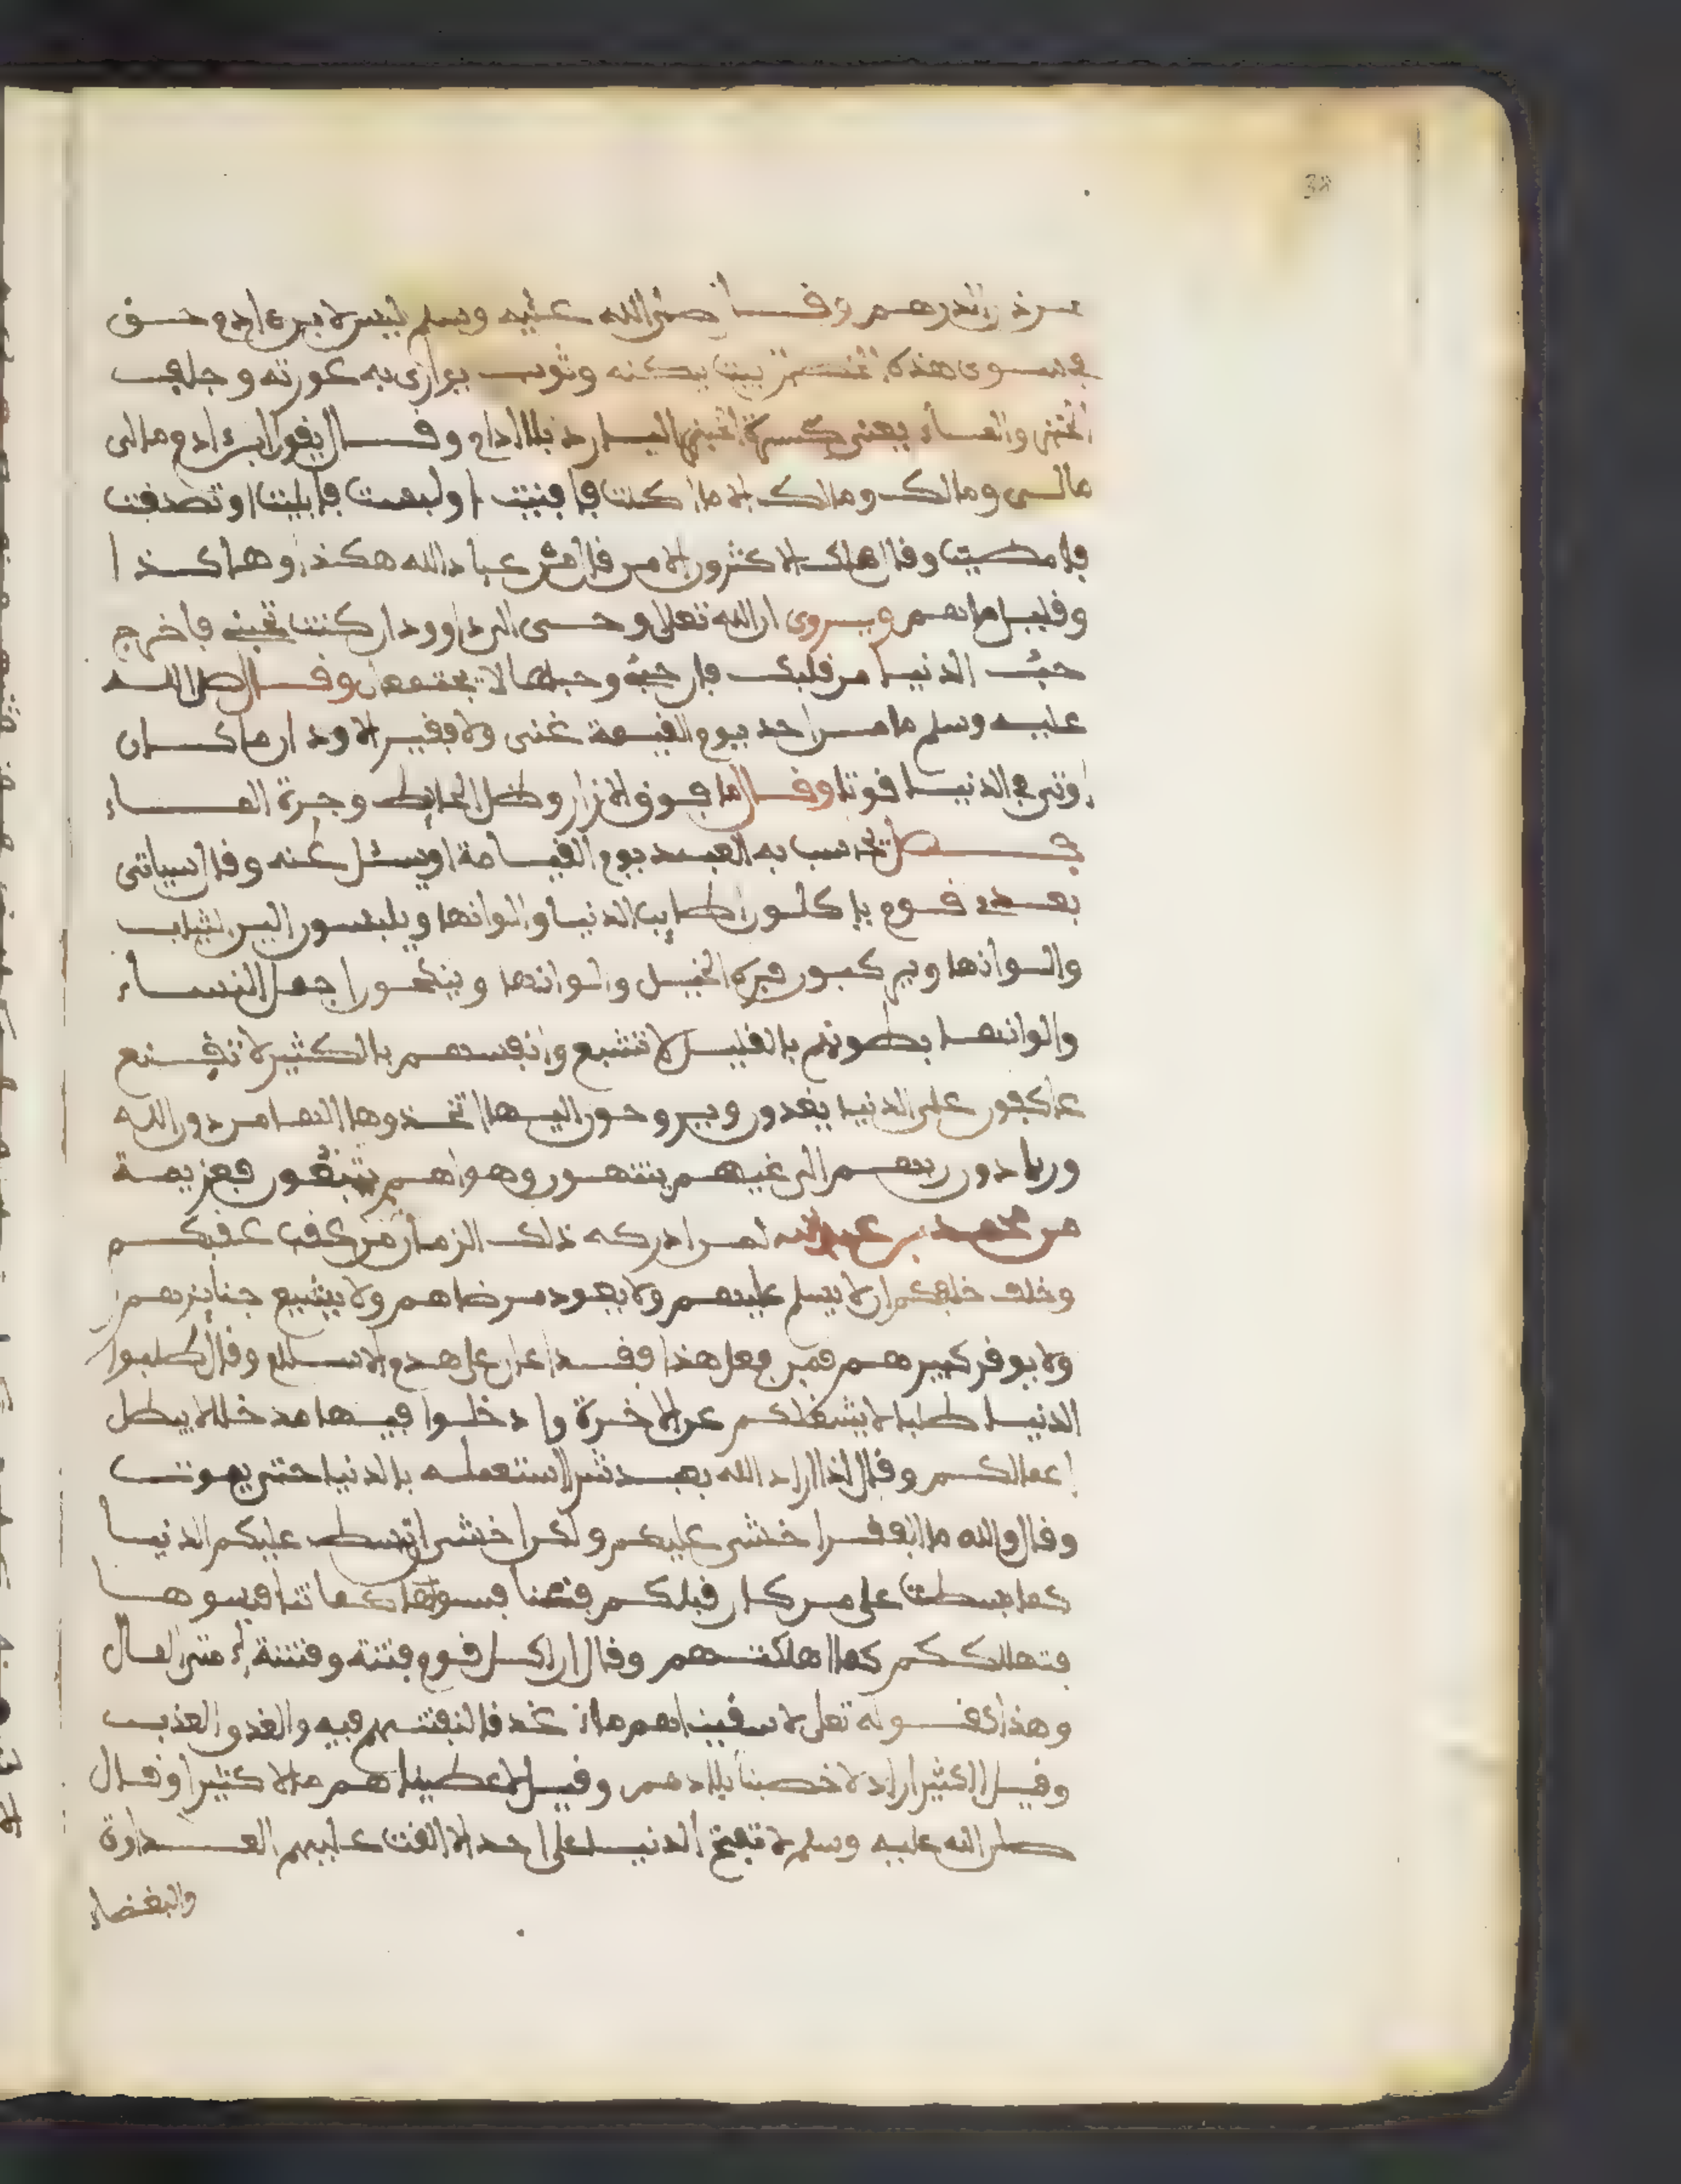 38
الدرهم وقال صلى الله عليه وسلم ليس لابن ءادم حق
في سوى هذه الخصال بيت يسكنه وثوب يوارى به عورته وجلف
الخبز والماء يعنى كسرة الخبز اليابس بلا ادام وقال يقول ابن ءادم مالى
مالى ومالك ومالك الا ما اكلت فافنيت او لبست فابليت او تصدقت
فامضيت وقال هلك الاكثرون الا من قال فى عباد الله هكذا وهاكذا
وقليل ما هم ويروى ان الله تعلى اوحى الى داوود ان كنت تحبنى فاخرج
حب الدنيا من قلبك فان حبى وحبها لا يجتمعان وقال صلى الله
عليه وسلم ما من احد يوم القيمة غنى ولا فقير الا ود ان ما كان
اوتى فى الدنيا قوتا وقال ما فوق الازار وظل الحايط وجرة الماء
فضل يحاسب به العبد يوم القيامة او يسئل عنه وقال سياتى
بعدى قوم ياكلون اطايب الدنيا والوانها ويلبسون الين الثياب
والوانها ويركبون فره الخيل والوانها وينكحون اجمل النساء
والوانها بطونهم بالقليل لا تشبع وانفسهم بالكثير لا تقنع
عاكفون على الدنيا يغدون ويروحون اليها اتخذوها الها من دون الله
وربا دون ربهم الى غيهم ينتهون وهواهم يتبعون فعزيمة
من محمد بن عبد الله لمن ادركه ذلك الزمان من عقب عقبكم
وخلف خلفكم ان لا يسلم عليهم ولا يعود مرضاهم ولا يشيع جنايزهم
ولا يوقر كبيرهم فمن فعل هذا فقد اعان على هدم الاسلام وقال اطلبوا
الدنيا طلبا لا يشغلكم عن الاخرة وادخلوا فيها مدخلا لا يبطل
اعمالكم وقال اذا اراد الله بعبد شرا استعمله بالدنيا حتى يموت
وقال والله ما الفقر اخشى عليكم ولكن اخشى ان تبسط عليكم الدنيا
كما بسطت على من كان قبلكم فتنافسوها كما تنافسوها
فتهلككم كما اهلكتهم وقال ان لكل قوم فتنة وفتنة امتى المال
وهذا كقوله تعلى لاسقيناهم ماء غدقا لنفتنهم فيه والغدق العذب
وقيل الكثير اراد لاخصبنا بلادهم وقيل لاعطيناهم مالا كثيرا وقال
صلى الله عليه وسلم لا تفتح الدنيا على احد الا القت عليهم العداوة
والبغضاء